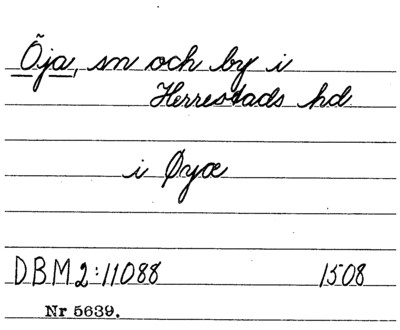 Õja, sn och by i
Herrestads hd
i Øyæ
DBM 2:11088 1508
Nr 5639.